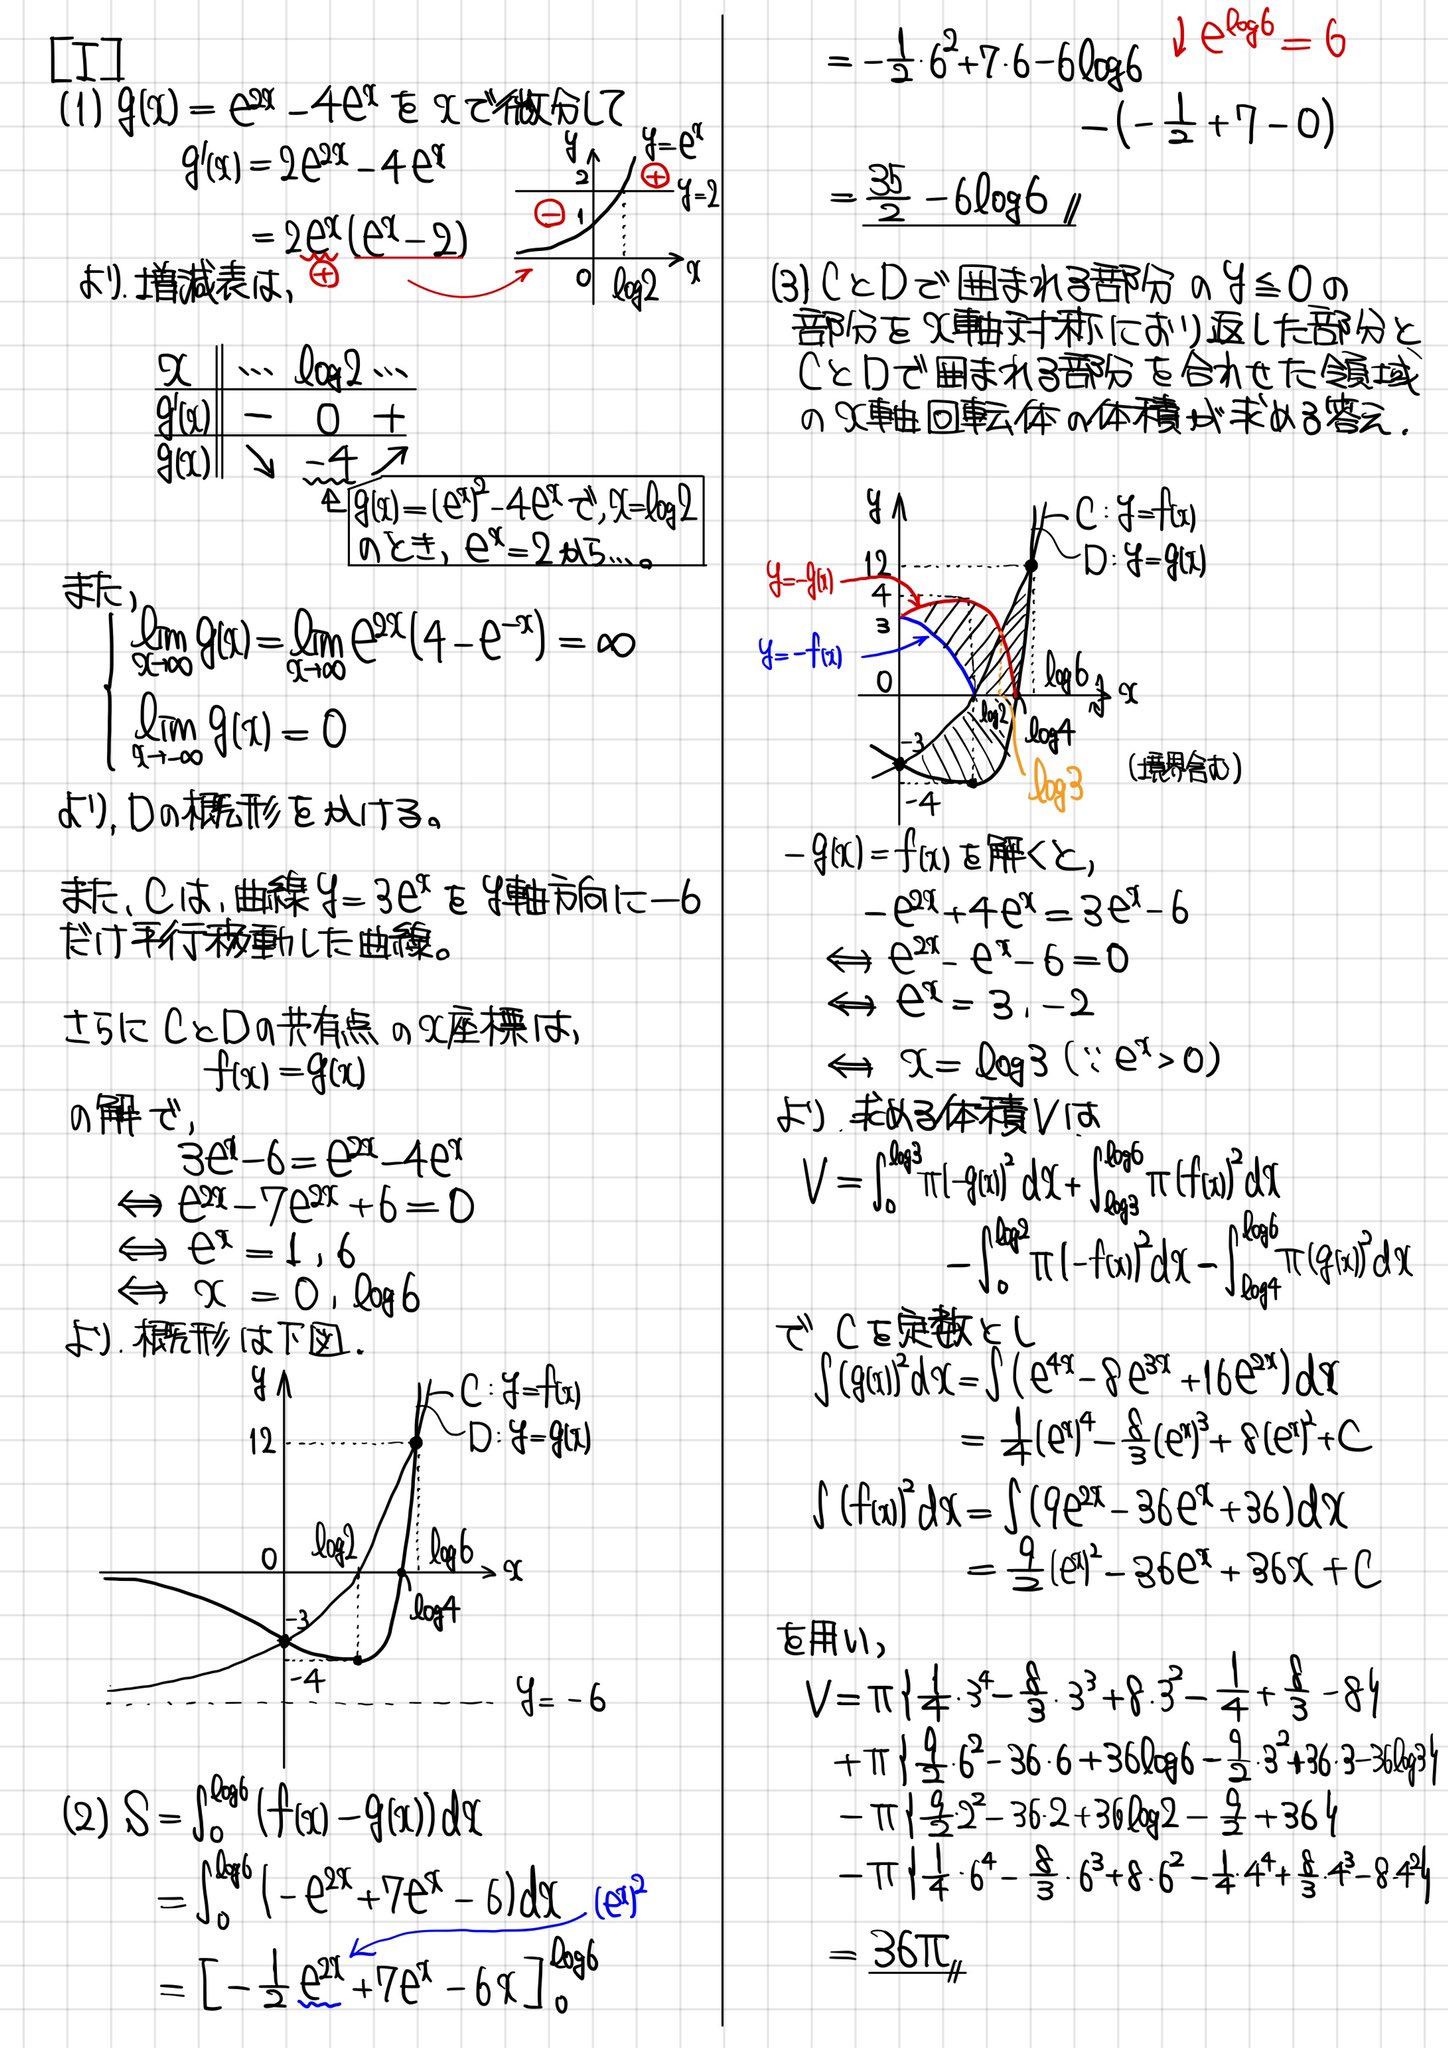 [I]
(1) g(x) = e^{2x} - 4e^x を xで微分して
g'(x) = 2e^{2x} - 4e^x
= 2e^x(e^x - 2)
⊕
y
y=e^x
2
⊕
y=2
⊖
1
0
log2
x
より、増減表は、
x … log2 …
g'(x) - 0 +
g(x) ↘ -4 ↗
g(x)=(e^x)^2-4e^xで,x=log2
のとき, e^x=2から…。
また,
lim_{x→∞} g(x) = lim_{x→∞} e^{2x}(4-e^{-x}) = ∞
lim_{x→-∞} g(x) = 0
より、Dの概形をかける。
また、Cは、曲線y=3e^xをy軸方向に-6
だけ平行移動した曲線。
さらにCとDの共有点のx座標は、
f(x)=g(x)
の解で,
3e^x-6=e^{2x}-4e^x
⇔ e^{2x}-7e^{2x}+6=0
⇔ e^x=1, 6
⇔ x=0, log6
より、概形は下図.
y
C:y=f(x)
D:y=g(x)
12
0
log2
log6
x
log4
-3
-4
y=-6
(2) S=∫_0^{log6}(f(x)-g(x))dx
=∫_0^{log6}(-e^{2x}+7e^x-6)dx
(e^x)^2
=[-1/2 e^{2x}+7e^x-6x]_0^{log6}
=-1/2・6^2+7・6-6log6
↓ e^{log6}=6
-(-1/2+7-0)
=35/2-6log6
(3) CとDで囲まれる部分のy≦0の
部分をx軸対称におり返した部分と
CとDで囲まれる部分を合わせた領域
のx軸回転体の体積が求める答え.
y
C:y=f(x)
D:y=g(x)
12
y=-g(x)
4
3
y=-f(x)
0
log6
x
log2
log4
-3
log3
(境界含む)
-4
-g(x)=f(x)を解くと,
-e^{2x}+4e^x=3e^x-6
⇔ e^{2x}-e^x-6=0
⇔ e^x=3, -2
⇔ x=log3 (∵e^x>0)
より、求める体積Vは
V=∫_0^{log3}π(-g(x))^2dx+∫_{log3}^{log6}π(f(x))^2dx
-∫_0^{log2}π(-f(x))^2dx-∫_{log4}^{log6}π(g(x))^2dx
で Cを定数とし
∫(g(x))^2dx=∫(e^{4x}-8e^{3x}+16e^{2x})dx
=1/4(e^x)^4-8/3(e^x)^3+8(e^x)^2+C
∫(f(x))^2dx=∫(9e^{2x}-36e^x+36)dx
=9/2(e^x)^2-36e^x+36x+C
を用い,
V=π{1/4・3^4-8/3・3^3+8・3^2-1/4+8/3-8}
+π{9/2・6^2-36・6+36log6-9/2・3^2+36・3-36log3}
-π{9/2・2^2-36・2+36log2-9/2+36}
-π{1/4・6^4-8/3・6^3+8・6^2-1/4・4^4+8/3・4^3-8・4^2}
=36π